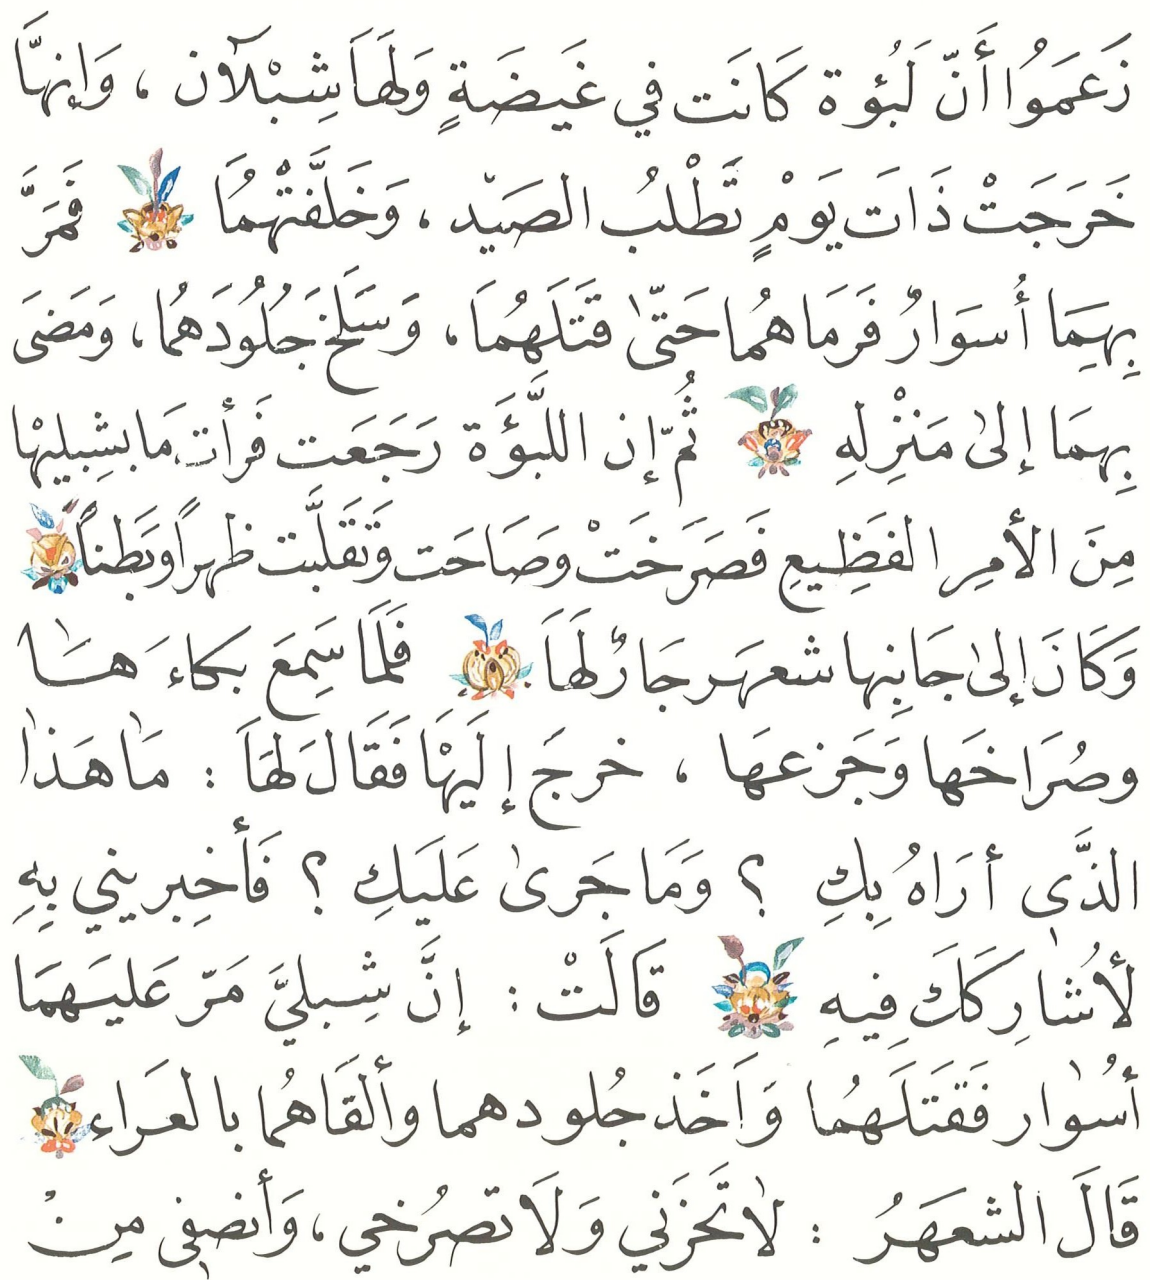 زَعَمَوُا أَنّ لَبُؤة كَانَت في غَيضَةٍ وَلَهَا شِبْلآن ، وَإنهَّا
خَرَجَتْ ذَاتَ يَوْمٍ تَطْلبُ الصَيْد ، وَخَلَّفتْهُمَا فَمَرَّ
بِهِمَا أُسوَارٌ فَرَمَاهُما حَتّىٰ قَتَلَهُمَا، وَسَلَخ جُلُودَهُما، وَمَضىَ
بِهِمَا إلىٰ مَنْزِلهِ ثُمّ إن اللَّبؤَة رَجَعَت فَرأت مَا بشِبليهْا
مِنَ الأمرِ الفَظِيعِ فَصَرَخَتْ وصَاحَت وتَقَلَّبت ظهراً وبَطناً
وَكَانَ إلىٰ جَانِبها شعهَر جَارٌ لهَا فَلَمَا سَمِعَ بكاءَ هَـا
وصُرَاخَها وَجَزعهَا ، خرجَ إليَهْا فَقَال لهَا : مَا هَذا
الذَّى أرَاهُ بِكِ ؟ وَمَا جَرىٰ عَلَيكِ ؟ فَأخبِريني بِهِ
لأُشارِكَكَ فِيهِ قَالَتْ : إنَّ شِبليَّ مَرّ عَليَهما
أسُوار فَقَتَلَهُما وَاَخَذ جُلودهما وألقَاهُما بالعَراء
قَالَ الشعهَرُ : لاَ تَحَزَني وَلاَ تَصرُخي ، وَأنصفِى مِنْ